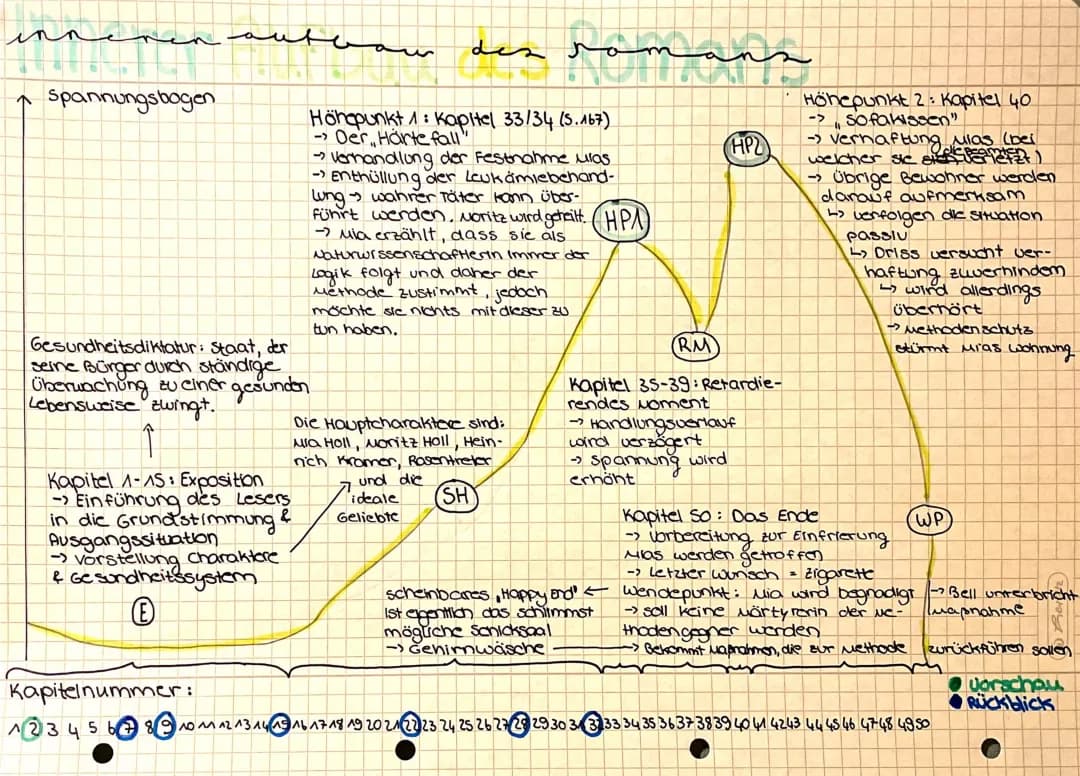 innerer aufbau des Romans
Innerer Aufbau des Romans
Spannungsbogen
Höhepunkt 1: Kapitel 33/34 (S.167)
-> Der „Härtefall"
-> Verhandlung der Festnahme Mias
-> Enthüllung der Leukämiebehand-
lung -> wahrer Täter kann über-
führt werden. Moritz wird geheilt.
-> Mia erzählt, dass sie als
Naturwissenschaftlerin immer der
Logik folgt und daher der
Methode zustimmt, jedoch
möchte sie nichts mit dieser zu
tun haben.
HP1
HP2
Höhepunkt 2: Kapitel 40
-> „Sofakissen"
-> Verhaftung Mias (bei
welcher sie die Beamten verletzt)
-> Übrige Bewohner werden
darauf aufmerksam
↳ verfolgen die Situation
passiv
↳ Driss versucht ver-
haftung zuverhindern
↳ wird allerdings
überhört
-> Methodenschutz
stürmt Mias Wohnung
Gesundheitsdiktatur: Staat, der
seine Bürger durch ständige
Überwachung zu einer gesunden
Lebensweise zwingt.
RM
Kapitel 35-39: Retardie-
rendes Moment
-> Handlungsverlauf
wird verzögert
-> Spannung wird
erhöht
Die Hauptcharaktere sind:
Mia Holl, Moritz Holl, Hein-
rich Kramer, Rosentreter
und die
ideale
Geliebte
SH
Kapitel 1-15: Exposition
-> Einführung des Lesers
in die Grundstimmung &
Ausgangssituation
-> Vorstellung Charaktere
& Gesundheitssystem
E
WP
Kapitel 50: Das Ende
-> Vorbereitung zur Einfrierung
Mias werden getroffen
-> Letzter Wunsch = Zigarette
Wendepunkt: Mia wird begnadigt
-> soll keine Märtyrerin der Me-
thodengegner werden
-> Bekommt Maßnahmen, die zur Methode zurückführen sollen
-> Bell unterbricht
Maßnahme
scheinbares „Happy End" <-
ist eigentlich das schlimmst
mögliche Schicksaal
-> Gehirnwäsche
Kapitelnummer:
● Vorschau
● Rückblick
1 2 3 4 5 6 7 8 9 10 11 12 13 14 15 16 17 18 19 20 21 22 23 24 25 26 27 28 29 30 31 32 33 34 35 36 37 38 39 40 41 42 43 44 45 46 47 48 49 50